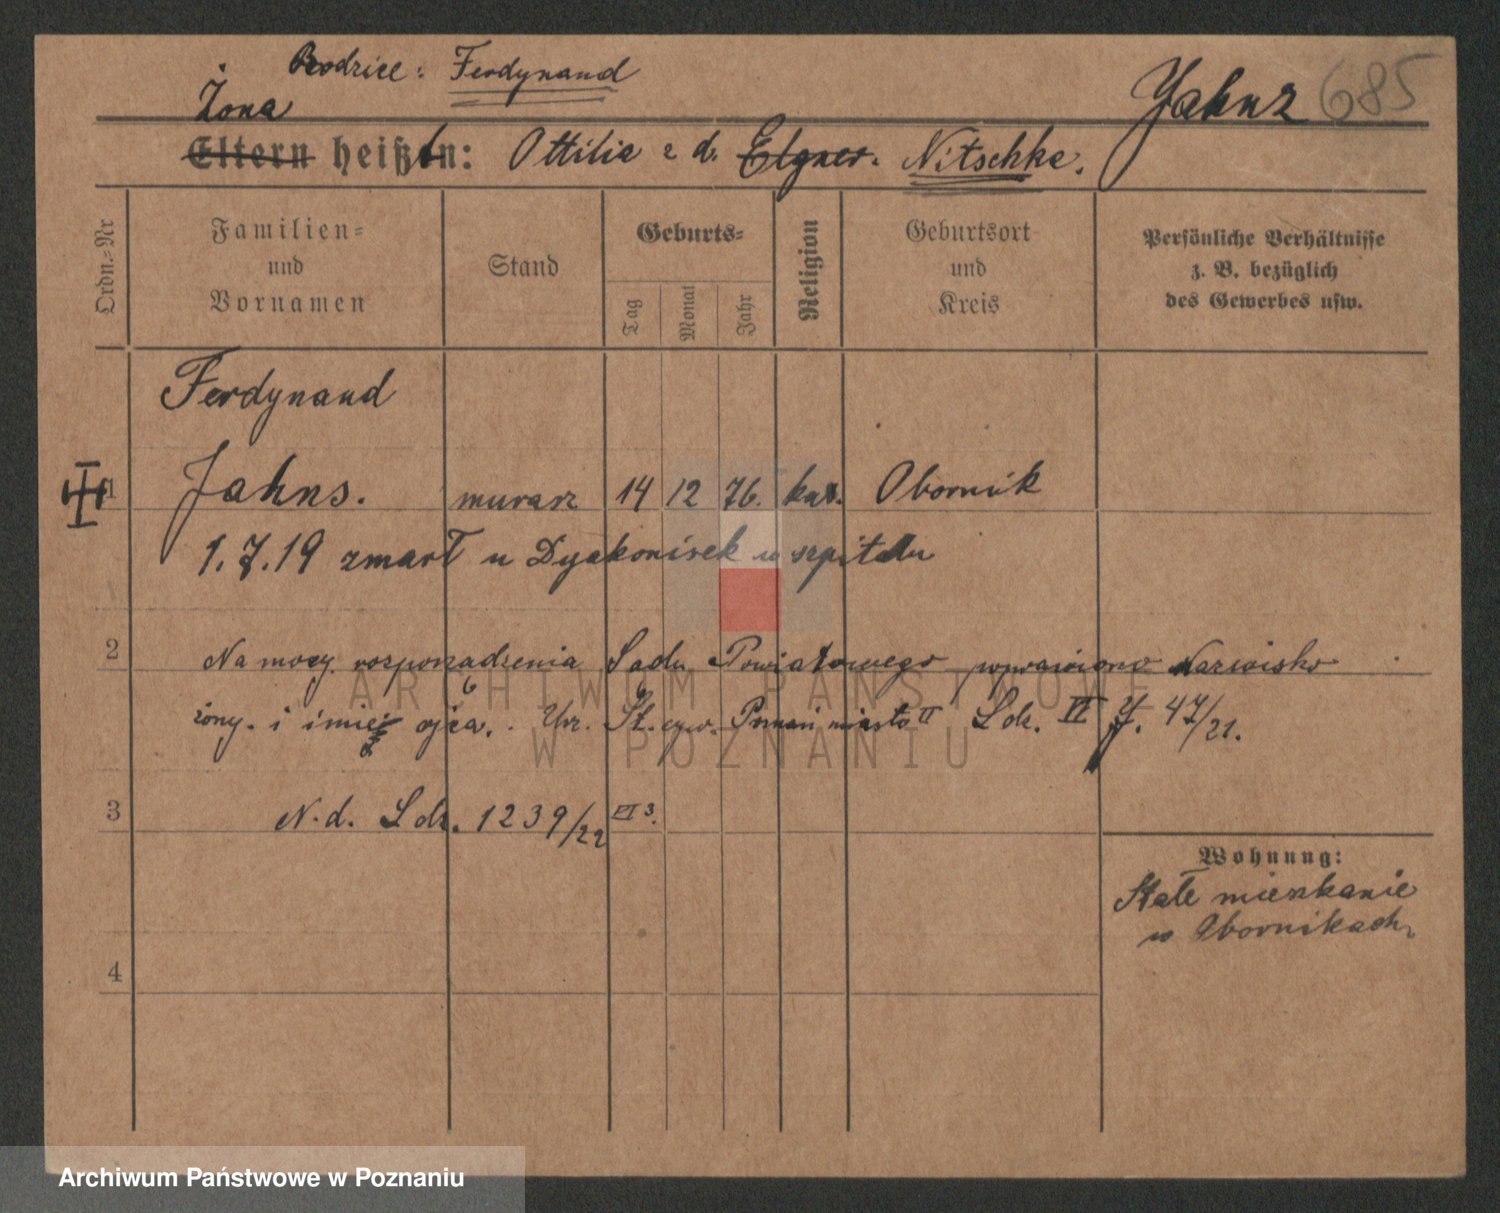 Rodzice: Ferdynand
Żona
Jahnz 685
Eltern heißen: Ottilie z d. Elgner. Nitschke.
Ordn.-Nr
Familien-
und
Vornamen
Stand
Geburts-
Tag
Monat
Jahr
Religion
Geburtsort
und
Kreis
Persönliche Verhältnisse
z. B. bezüglich
des Gewerbes usw.
Ferdynand
1 Jahns. murarz 14 12 76. kat. Obornik
1.7.19 zmarł u Dyakonisek w szpitalu
2 Na mocy rozporzadzenia Sadu Powiatowego poprawiono Nazwisko
żony. i imię ojca. Urz. St. cyw. Poznań miasto II Ldz. II J. 47/21.
3 N. d. Ldz. 1239/22 VI 3.
Wohnung:
Stałe mieszkanie
w Obornikach.
4
ARCHIWUM PAŃSTWOWE
W POZNANIU
Archiwum Państwowe w Poznaniu